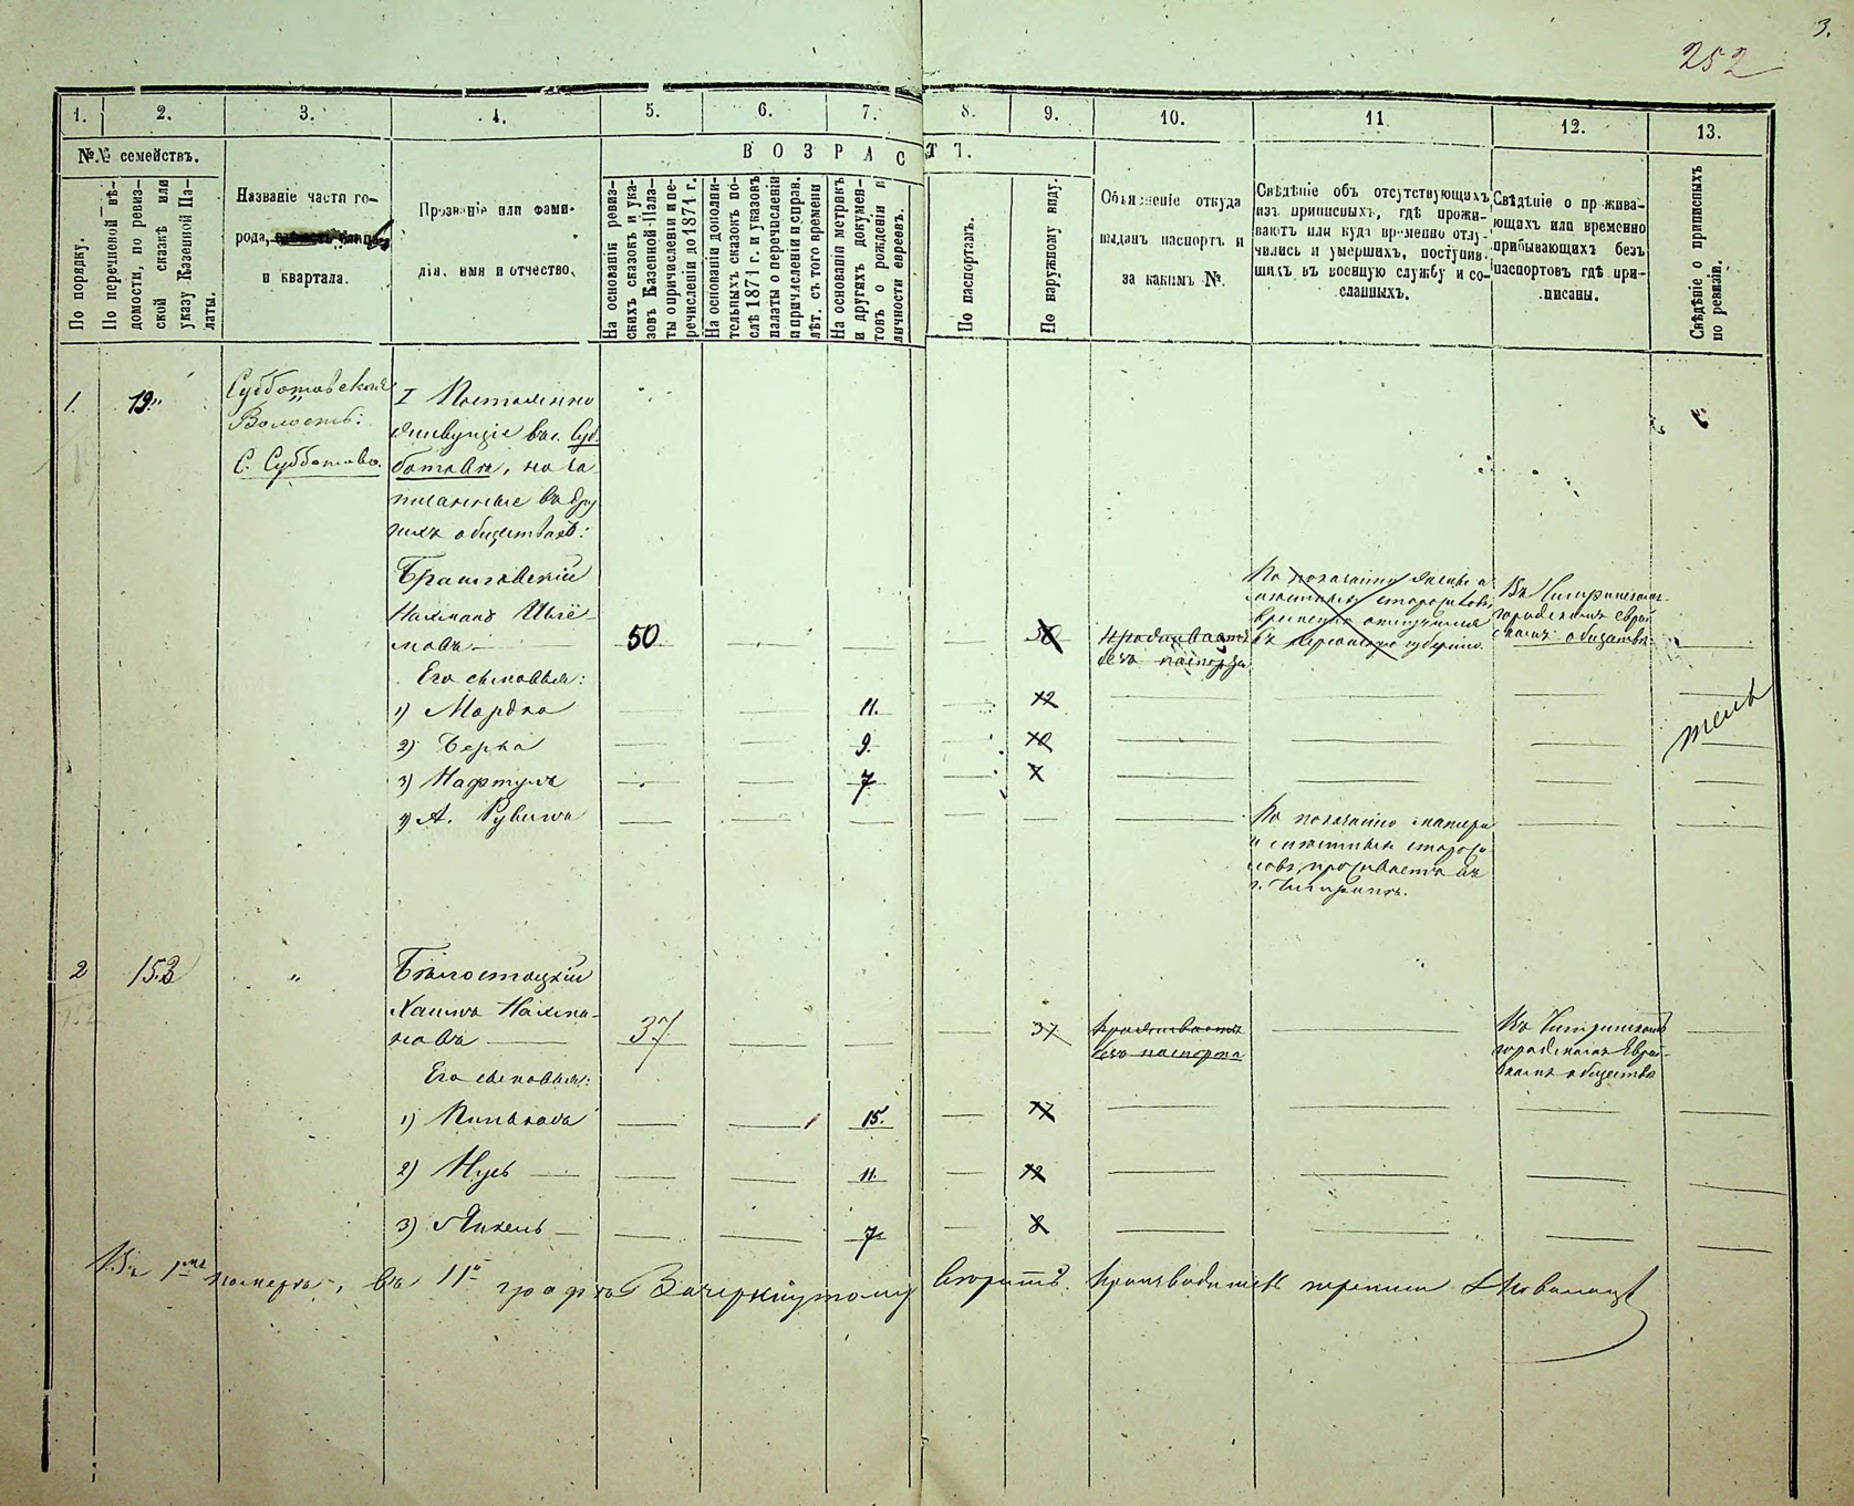 3.
252
1.
2.
3.
4.
5.
6.
7.
8.
9.
10.
11
12.
13.
№№ семействъ.
По порядку.
По перечневой вѣ-
домости, по ревиз-
ской сказкѣ или
указу Казенной Па-
латы.
Названіе части го-
рода,
и квартала.
Прозваніе или фами-
лія, имя и отчество.
ВОЗРАСТЪ.
На основаніи ревиз-
скихъ сказокъ и ука-
зовъ Казенной Пала-
ты о причисленіи и пе-
речисленіи до 1871 г.
На основаніи дополни-
тельныхъ сказокъ по-
слѣ 1871 г. и указовъ
палаты о перечисленіи
и причисленіи и справ.
лѣт. съ того времени
На основаніи метрикъ
и другихъ докумен-
товъ о рожденіи и
личности евреевъ.
По паспортамъ.
По наружному виду.
Объясненіе откуда
выданъ паспортъ и
за какимъ №.
Свѣдѣніе объ отсутствующихъ
изъ приписныхъ, гдѣ прожи-
ваютъ или куда временно отлу-
чились и умершихъ, поступив-
шихъ въ военную службу и со-
сланныхъ.
Свѣдѣніе о прожива-
ющихъ или временно
прибывающихъ безъ
паспортовъ гдѣ при-
писаны.
Свѣдѣніе о приписныхъ
по ревизіи.
1.
19.
Субботовская
Волость:
С. Субботово.
I Постоянно
живущіе въ с. Суб-
ботовѣ, но за-
писанные въ дру
гихъ обществахъ:
Брашовскій
Нахманъ
мовъ
50
50
проживаетъ
безъ паспорта
По показанію
временно отлучился
въ Херсонскую губернію.
Въ Чигиринскомъ
городскомъ еврей
скомъ обществѣ.
Его сыновья:
1) Мордко
11.
12
2) Берко
9.
10
3) Нафтула
7
4) А. Рувинъ
По показанію матери
и
проживаетъ въ
г. Чигиринѣ.
2
153
"
Бѣлостоцкій
Хаимъ Нахма-
новъ
37
37
проживаетъ
безъ паспорта
Въ Чигиринскомъ
городскомъ Еврей-
скомъ обществѣ
Его сыновья:
1)
15.
17
2) Нусь
11.
12
3) Янкель
7
8
Въ 1мъ номерѣ, въ 11й графѣ Зачеркнутому вѣрить. Производитель переписи